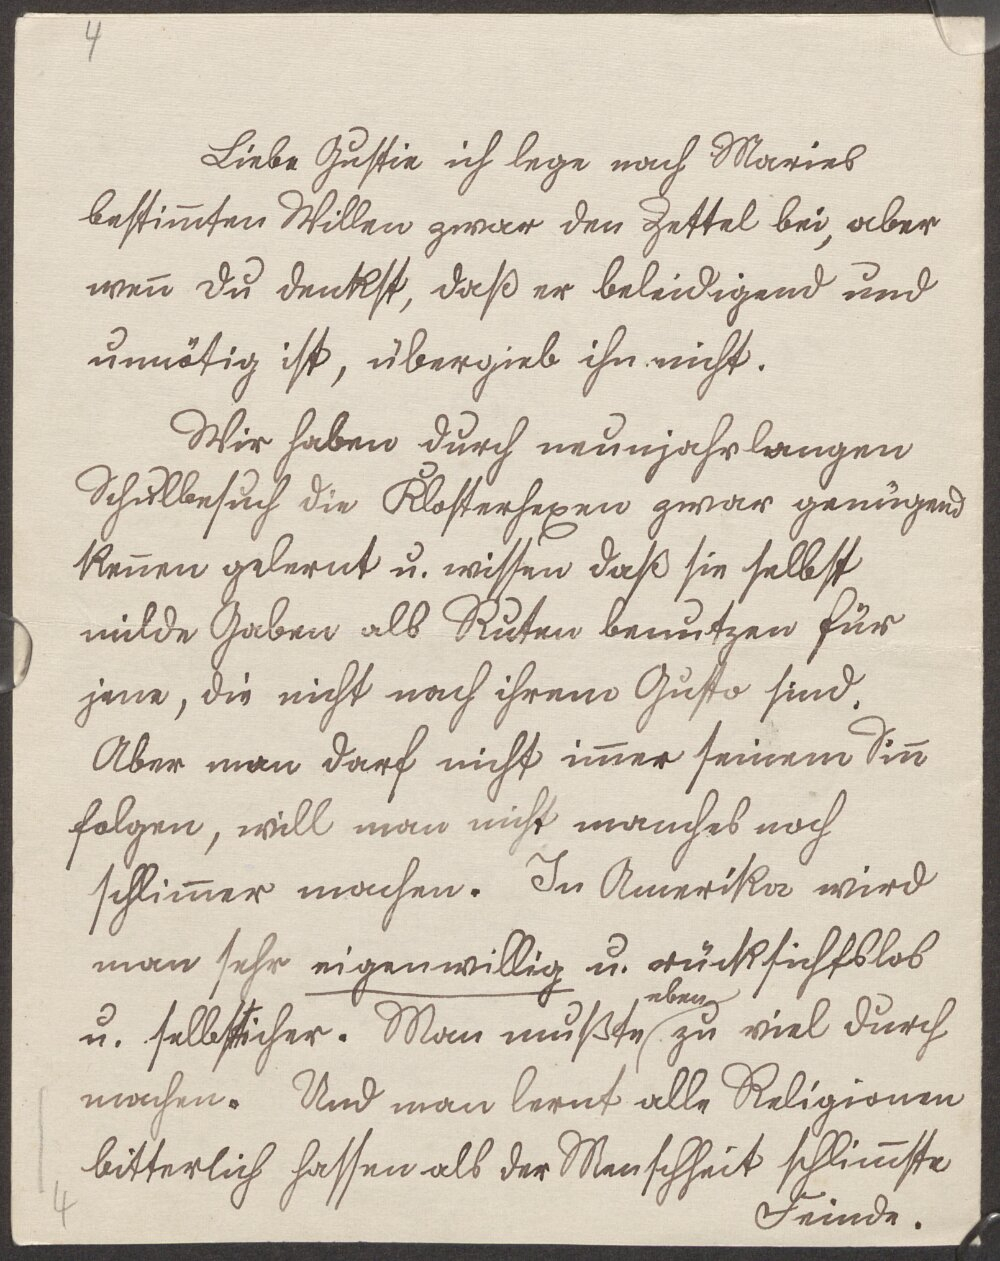 4
Liebe Gustie ich lege nach Maries
bestim̄ten Willen zwar den Zettel bei, aber
wen̄ du denkst, daß er beleidigend und
unnötig ist, übergieb ihn nicht.
Wir haben durch neunjahrlangen
Schulbesuch die Klosterhexen zwar genügend
ken̄en gelernt u. wissen daß sie selbst
milde Gaben als Ruten benutzen für
jene, die nicht nach ihrem Gusto sind.
Aber man darf nicht im̄er seinem Sin̄
folgen, will man nicht manches noch
schlim̄er machen. In Amerika wird
man sehr eigenwillig u. rücksichtslos
u. selbstsicher. Man mußte eben zu viel durch
machen. Und man lernt alle Religionen
bitterlich hassen als der Menschheit schlim̄ste
Feinde.
4